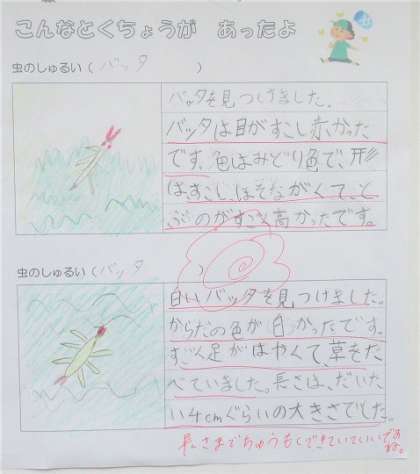 こんなとくちょうが あったよ
虫のしゅるい( バッタ )
バッタを見つけました。
バッタは目がすこし赤かった
です。色はみどり色で、形
は、すこし、ほそながくて、と
ぶのがすごく高かったです。
虫のしゅるい( バッタ )
白いバッタを見つけました。
からだの色が白かったです。
すごく足がはやくて、草をた
べていました。長さは、だいた
い4cmぐらいの大きさでした。
長さまでちゅうもくできていていいですね。